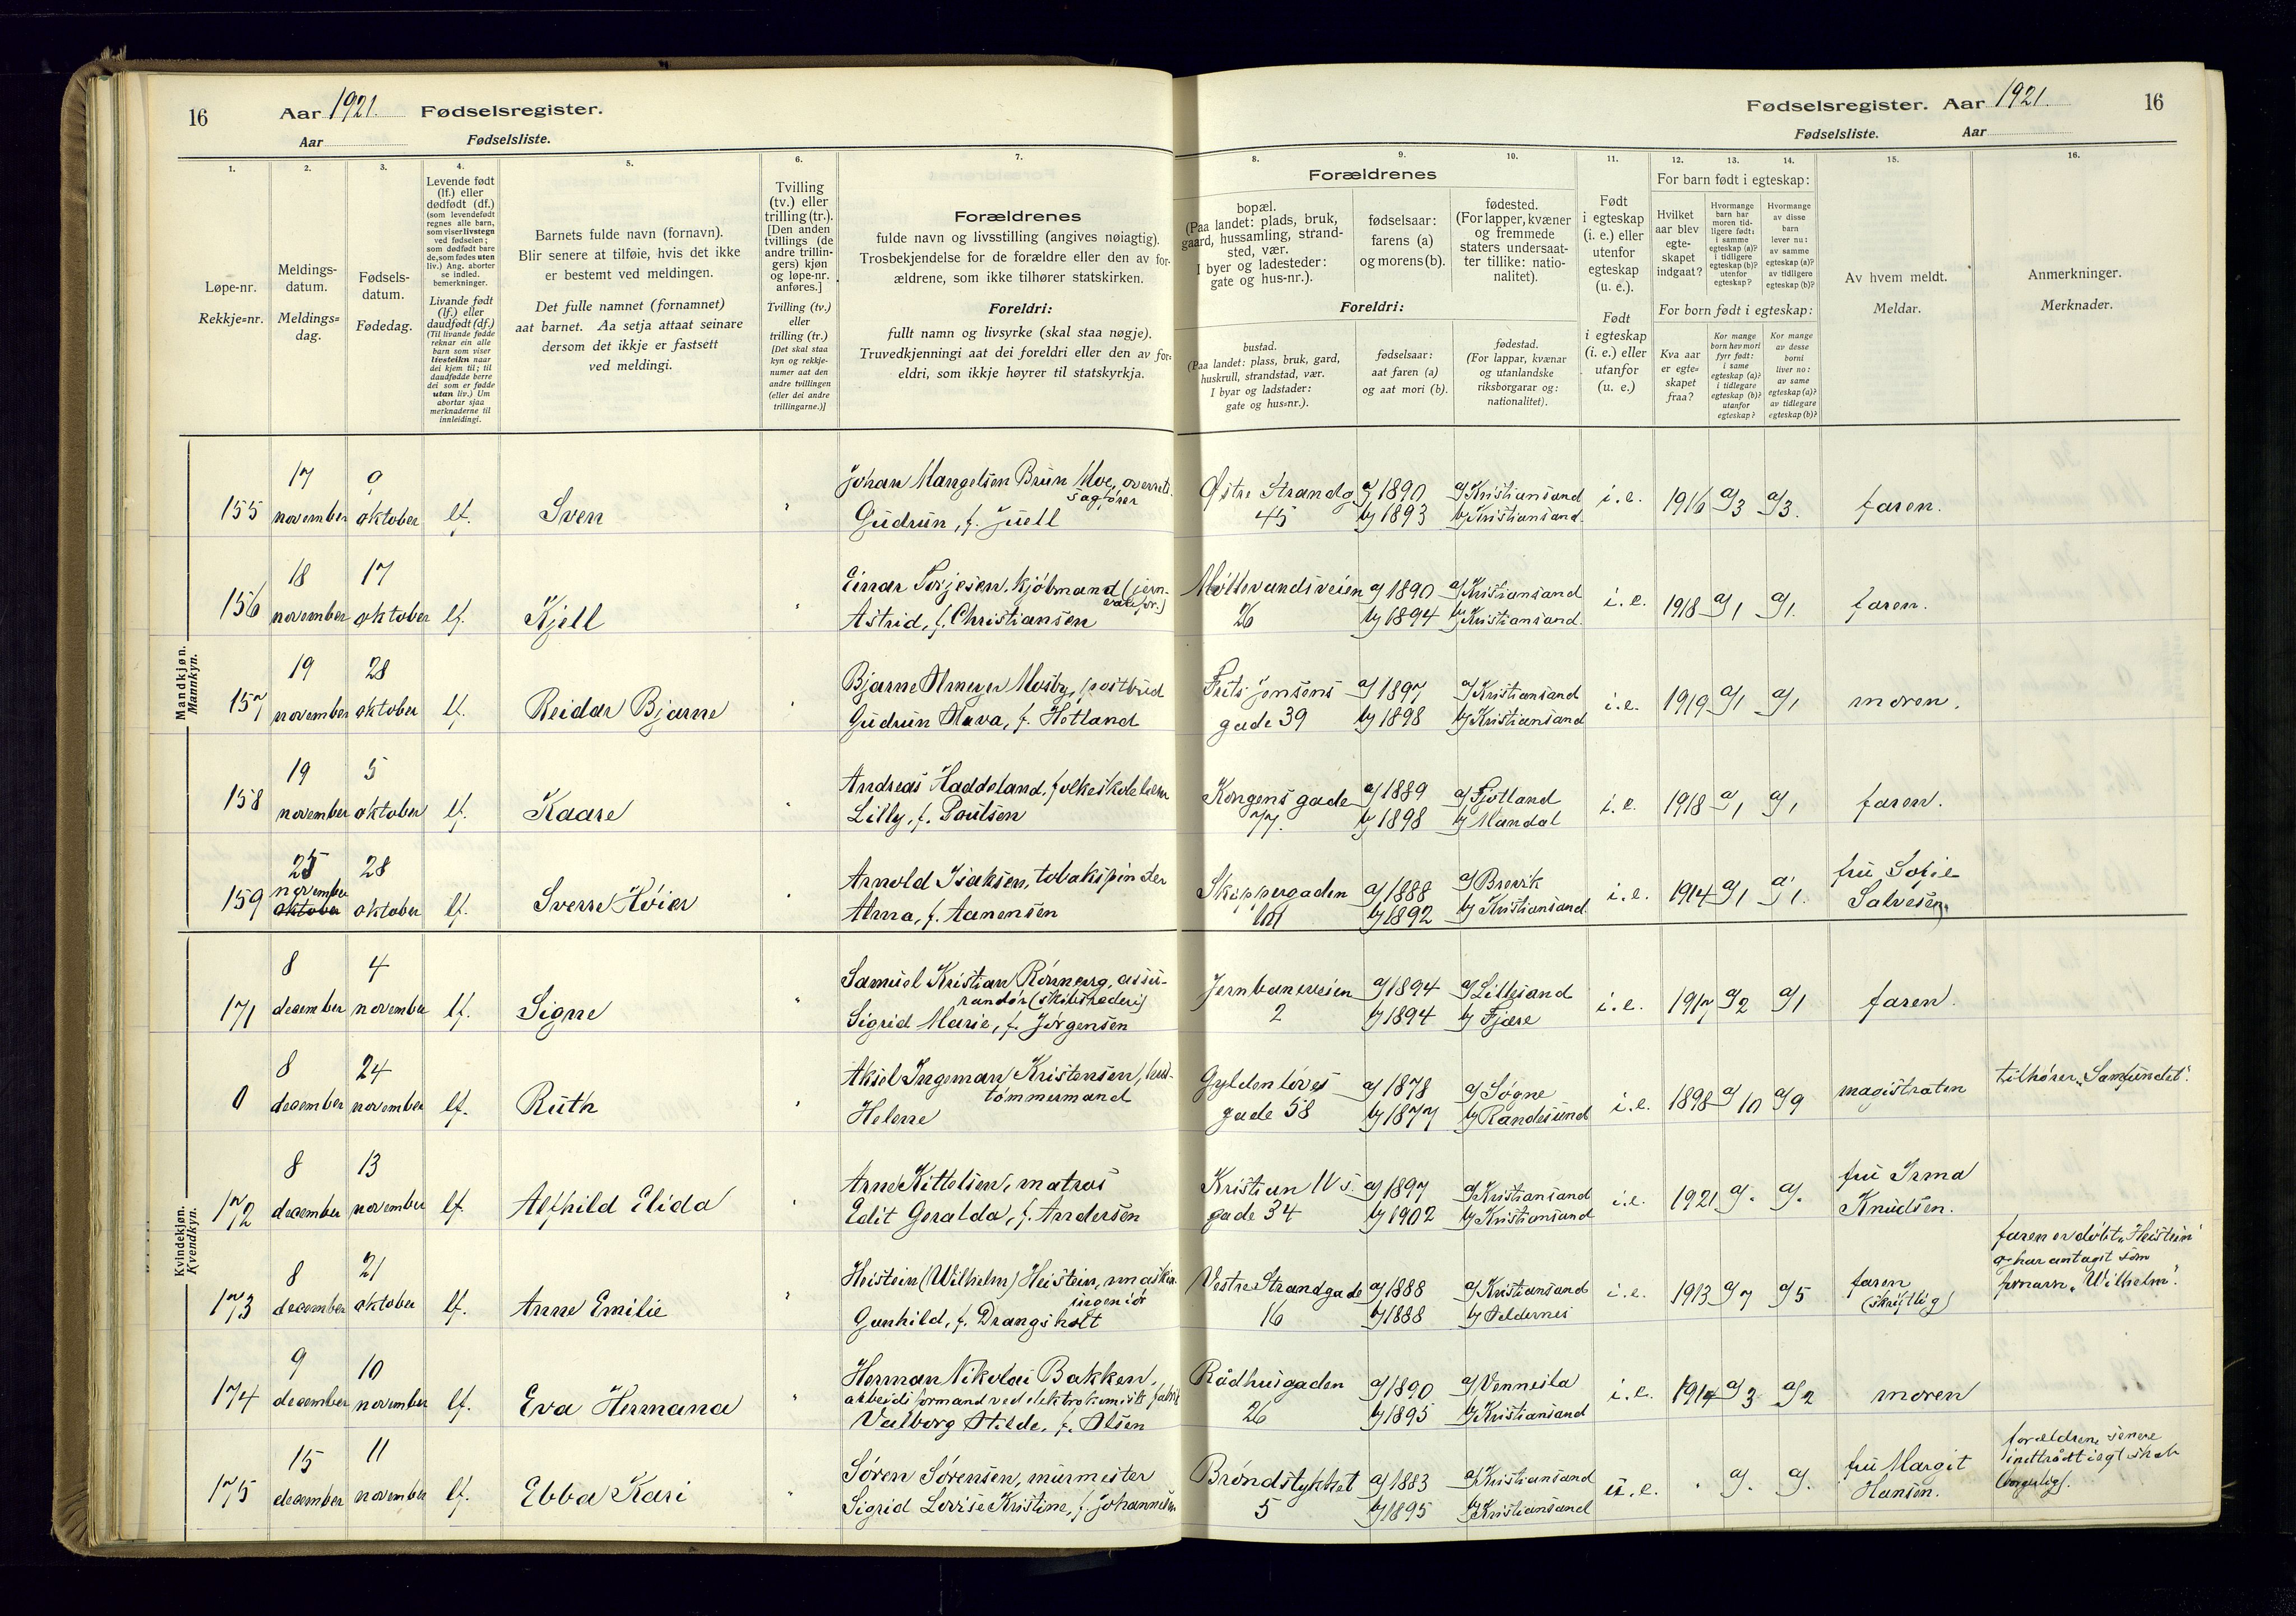 16
Aar 1921. Fødselsregister.
Aar Fødselsliste.
Fødselsregister. Aar 1921.
16
Fødselsliste. Aar
1. 2. 3. 4. 5. 6. 7.
Løpe-nr.
Rekkje=nr.
Meldings-
datum.
Meldings=
dag.
Fødsels-
datum.
Fødedag.
Levende født
(lf.) eller
dødfødt (df.)
(som levendefødt
regnes alle barn,
som viser livstegn
ved fødselen;
som dødfødt bare
de, som fødes uten
liv.) Ang. aborter
se indled.
bemerkninger.
Livande født
(lf.) eller
daudfødt (df.)
(Til livande fødde
reknar ein alle
barn som viser
livsteikn naar
dei kjem til; til
daudfødde berre
dei som er fødde
utan liv.) Um
abortar sjaa
merknaderne til
innleidingi.
Barnets fulde navn (fornavn).
Blir senere at tilføie, hvis det ikke
er bestemt ved meldingen.
Det fulle namnet (fornamnet)
aat barnet. Aa setja attaat seinare
dersom det ikkje er fastsett
ved meldingi.
Tvilling
(tv.) eller
trilling (tr.).
[Den anden
tvillings (de
andre trillin-
gers) kjøn
og løpe-nr.
anføres.]
Tvilling (tv.)
eller
trilling (tr.)
[Det skal staa
kyn og rekkje-
numer aat den
andre tvillingen
(eller dei andre
trillingarne.)]
Forældrenes
fulde navn og livsstilling (angives nøiagtig).
Trosbekjendelse for de forældre eller den av for-
ældrene, som ikke tilhører statskirken.
Foreldri:
fullt namn og livsyrke (skal staa nøgje).
Truvedkjenningi aat dei foreldri eller den av for=
eldri, som ikkje høyrer til statskyrkja.
8. 9. 10. 11. 12. 13. 14. 15. 16.
Forældrenes
bopæl.
(Paa landet: plads, bruk,
gaard, hussamling, strand-
sted, vær.
I byer og ladesteder:
gate og hus-nr.).
fødselsaar:
farens (a)
og morens (b).
fødested.
(For lapper, kvæner
og fremmede
staters undersaat-
ter tillike: natio-
nalitet).
Foreldri:
bustad.
(Paa landet: plass, bruk, gard,
huskrull, strandstad, vær.
I byar og ladstader:
gate og hus=nr.).
fødselsaar:
aat faren (a)
og aat mori (b).
fødestad.
(For lappar, kvænar
og utanlandske
riksborgarar og:
nationalitet).
Født
i egteskap
(i. e.) eller
utenfor
egteskap
(u. e.).
Født
i egteskap
(i. e.) eller
utanfor
(u. e.)
For barn født i egteskap:
Hvilket
aar blev
egte-
skapet
indgaat?
Hvormange
barn har
moren tid-
ligere født:
i samme
egteskap (a)?
i tidligere
egteskap (b)?
utenfor
egteskap?
Hvormange
av disse
barn
lever nu:
av samme
egteskap (a)?
av tidligere
egteskap (b)?
For born født i egteskap:
Kva aar
er egte=
skapet
fraa?
Kor mange
born hev mori
fyrr født:
i same
egteskap (a)?
i tidlegare
egteskap (b)?
utanfor
egteskap?
Kor mange
av desse
borni
liver no:
av same
egteskap (a)?
av tidlegare
egteskap (b)?
Av hvem meldt.
Meldar.
Anmerkninger.
Merknader.
Mandkjøn.
Mannkyn.
155 17 november 9 oktober lf. Sven " Johan Mangelsen Brun Moe, overrets-
sagfører
Gudrun, f. Juell
Østre Strandg 45 a/ 1890 b/ 1893 a/ Kristiansand b/ Kristiansand i. e. 1916 a/3 a/3. faren.
156 18 november 17 oktober lf. Kjell " Einar Torjesen, kjøbmand (jern-
varefor.)
Astrid, f. Christiansen
26 a/ 1890 b/ 1894 a/ Kristiansand b/ Kristiansand. i. e. 1918 a/1 a/1. faren.
157 19 november 28 oktober lf. Reidar Bjarne " Bjarne Mosby, postbud
Gudrun f. Høtland
Frits Jensens gade 39 a/ 1897 b/ 1898 a/ Kristiansand b/ Kristiansand i. e. 1919 a/1 a/1 moren.
158 19 november 5 oktober lf. Kaare " Andreas Haddeland, folkeskolelærer
Lilly, f. Poulsen
Kongens gade 77. a/ 1889 b/ 1898 a/ Fjotland b/ Mandal i. e. 1918 a/1 a/1 faren.
159 25 november oktober 28 oktober lf. Sverre Høier " Arnold Isaksen, tobakspinder
Anna, f. Aanensen
Skippergaden a/ 1888 b/ 1892 a/ Brevik b/ Kristiansand. i. e. 1914 a/1 a/1. fru Sofie
Salvesen.
Kvindekjøn.
Kvendkyn.
171 8 december 4 november lf. Signe " Samuel Kristian assu-
randør (skibsrederi)
Sigrid Marie, f. Jørgensen
Jernbaneveien 2 a/ 1894 b/ 1894 a/ Lillesand b/ Fjære i. e. 1917 a/2 a/1 faren.
0 8 december 24 november lf. Ruth " Aksel Ingeman Kristensen,
tømmermand
Helene
Gyldenløves gade 58 a/ 1878 b/ 1877 a/ Søgne b/ Randesund i. e. 1898 a/10 a/9 magistraten tilhører "Samfundet".
172 8 december 13 november lf. Alfhild Elida " Arne Kittelsen, matros
Edit Geralda, f. Andersen
Kristian IVs gade 34 a/ 1897 b/ 1902 a/ Kristiansand b/ Kristiansand i. e. 1921 a/. a/. fru Irma
Knudsen.
173 8 december 21 oktober lf. Anne Emilie " Heistein (Wilhelm) Heistein, maskin-
ingeniør
Gunhild, f. Drangsholt
Vestre Strandgade 16 a/ 1888 b/ 1888 a/ Kristiansand b/ i. e. 1913 a/7 a/5 faren
(skriftlig)
faren er døbt "Heistein"
og har antaget som
fornavn "Wilhelm".
174 9 december 10 november lf. Eva Hermana " Herman Nikolai Bakken,
arbeidsformand ved elektrokemisk fabrik
Valborg Hilda, f. Olsen
Rådhusgaden 26 a/ 1890 b/ 1895 a/ Vennesla b/ Kristiansand i. e. 1914 a/3 a/2 moren
175 15 december 11 november lf. Ebba Kari " Søren Sørensen, murmester
Sigrid Lovise Kristine, f. Johannesen
Brøndstykket 5 a/ 1883 b/ 1895 a/ Kristiansand b/ Kristiansand u. e. . a/. a/. fru Margit
Hansen.
forældrene senere
indtrådt i egtskab
(borgerlig).